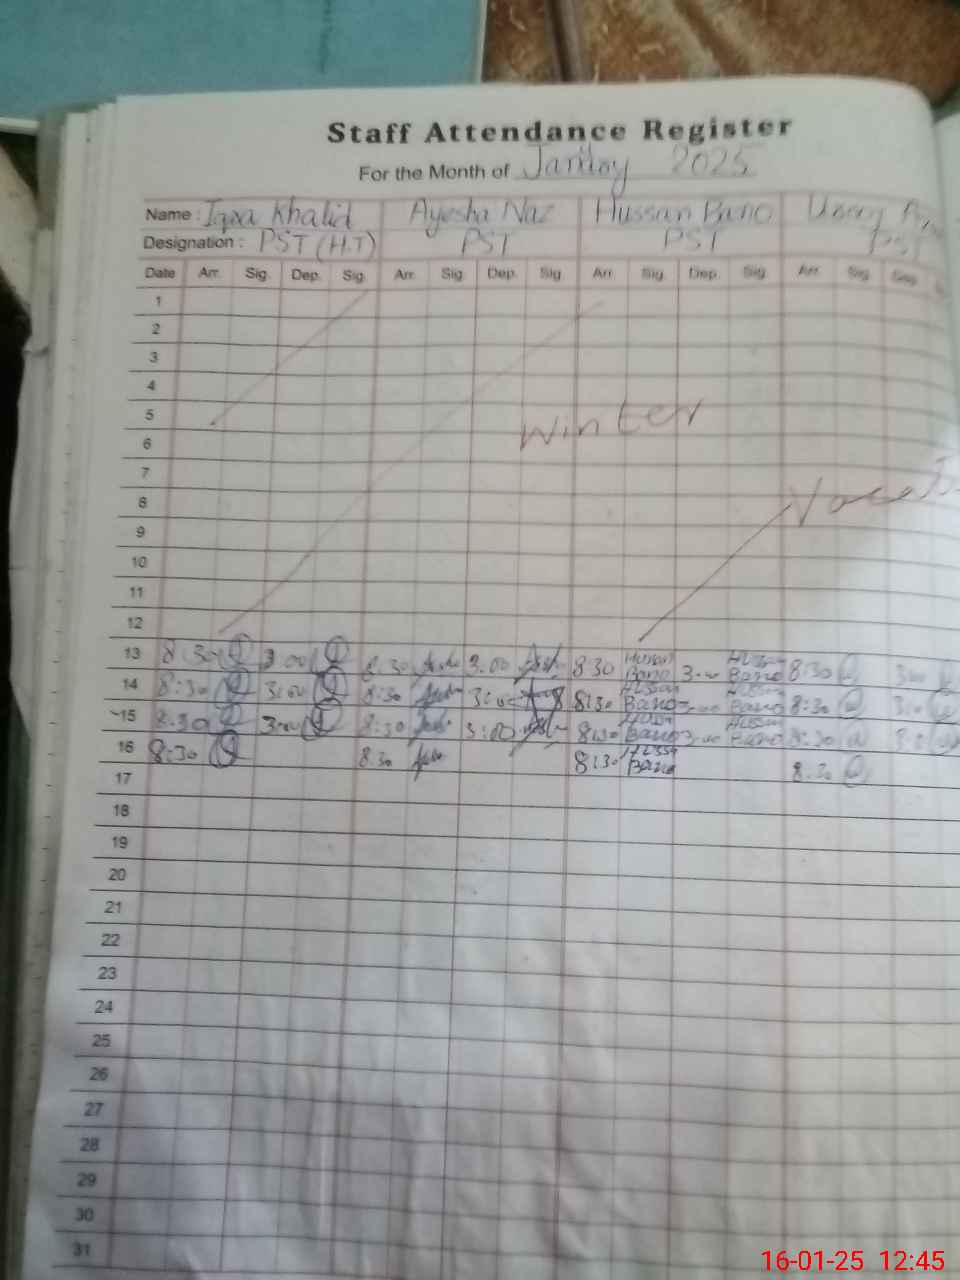 Staff Attendance Register
For the Month of January 2025
Name : Iqra Khalid Ayesha Naz Hussan Bano
Designation : PST (H.T) PST PST PST
Date Arr. Sig. Dep. Sig. Arr. Sig. Dep. Sig. Arr. Sig. Dep. Sig. Arr. Sig. Dep.
1
2
3
4
5
6 Winter
7
8 Vacat
9
10
11
12
13 8:30 3:00 8:30 3:00 8:30 Hussan Bano 3:00 Hussan Bano 8:30 3:00
14 8:30 3:00 8:30 3:00 8:30 Hussan Bano 3:00 Hussan Bano 8:30 3:00
15 8:30 3:00 8:30 3:00 8:30 Hussan Bano 3:00 Hussan Bano 8:30
16 8:30 8:30 8:30 Hussan Bano 8:30
17
18
19
20
21
22
23
24
25
26
27
28
29
30
31
16-01-25 12:45